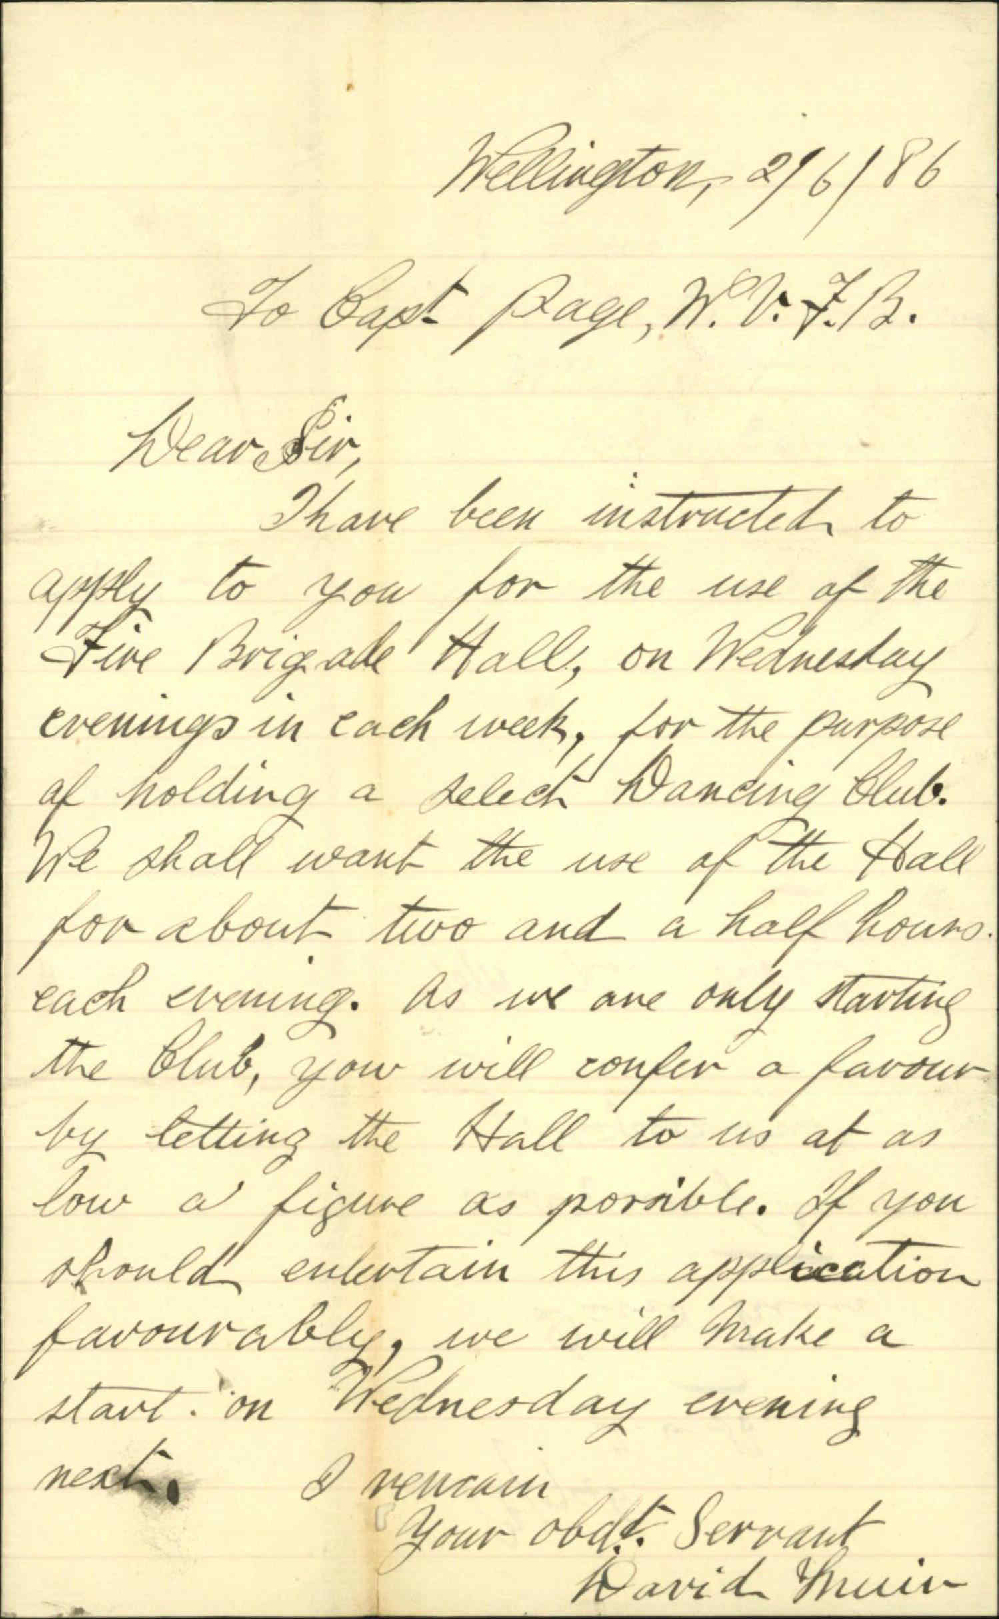 Wellington, 2/6/86
To Capt Page, W.V.F.B.
Dear Sir,
I have been instructed to
apply to you for the use of the
Fire Brigade Hall, on Wednesday
evenings in each week, for the purpose
of holding a select Dancing Club.
We shall want the use of the Hall
for about two and a half hours.
each evening. As we are only starting
the Club, you will confer a favour
by letting the Hall to us at as
low a figure as possible. If you
should entertain this application
favourably, we will make a
start on Wednesday evening
next. I remain
Your obdt. Servant
David Muir